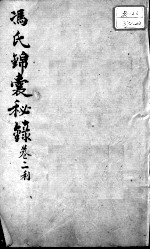 馮氏錦囊秘錄卷二利